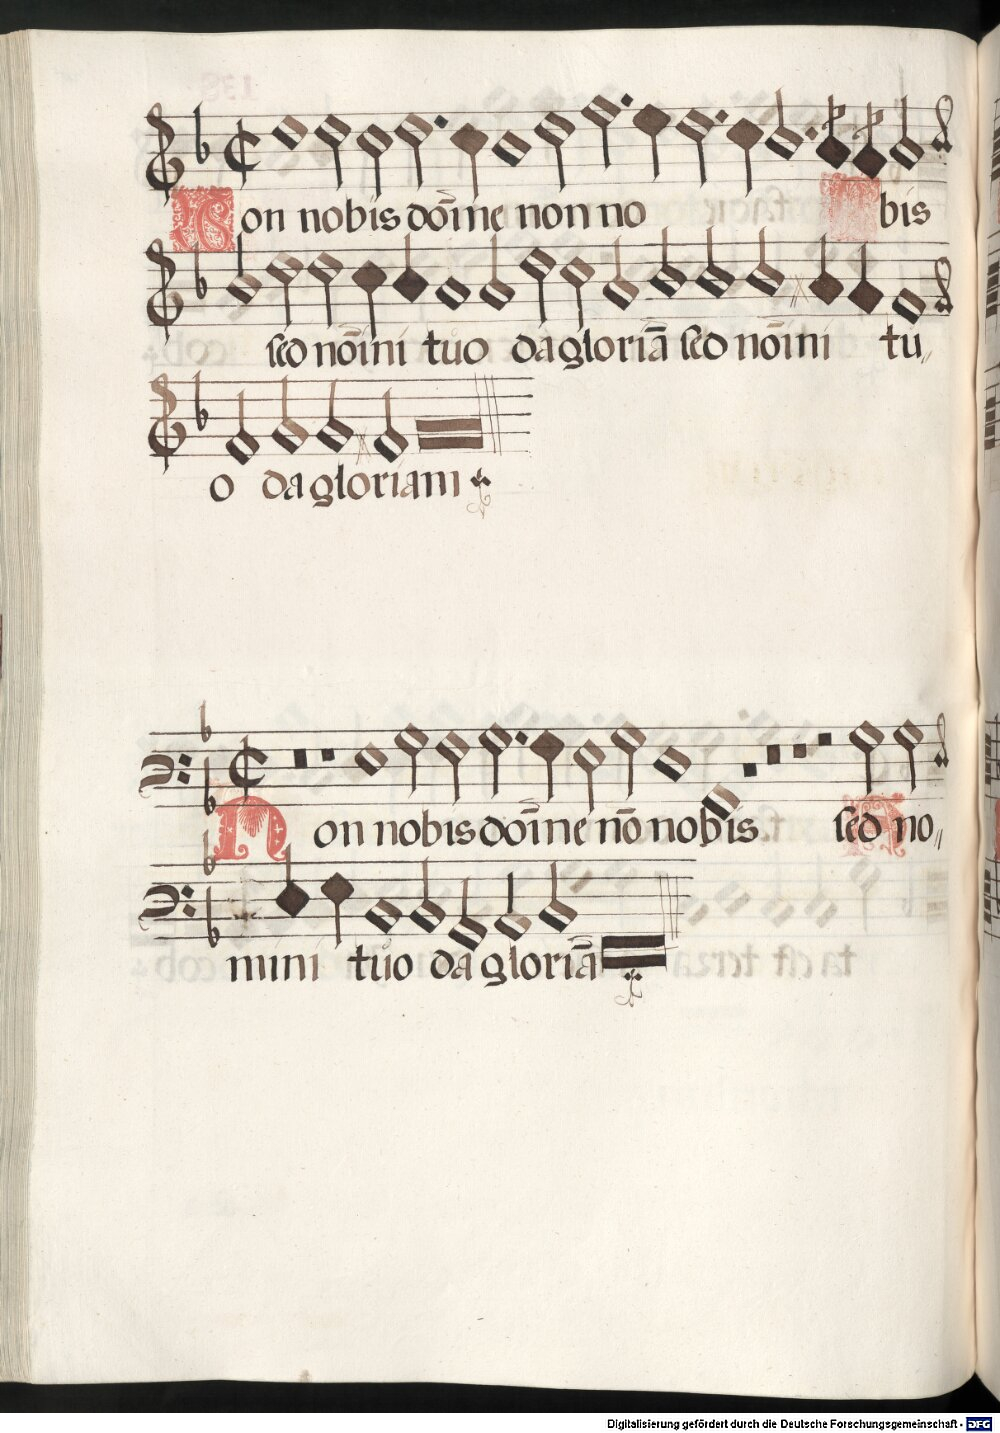 Non nobis dom̄ine non no bis
sed nōini tůo da gloriā sed nōini tu
o da gloriam
Non nobis dom̄ine nō nobis sed no
mini tůo da gloriā
Digitalisierung gefördert durch die Deutsche Forschungsgemeinschaft - DFG